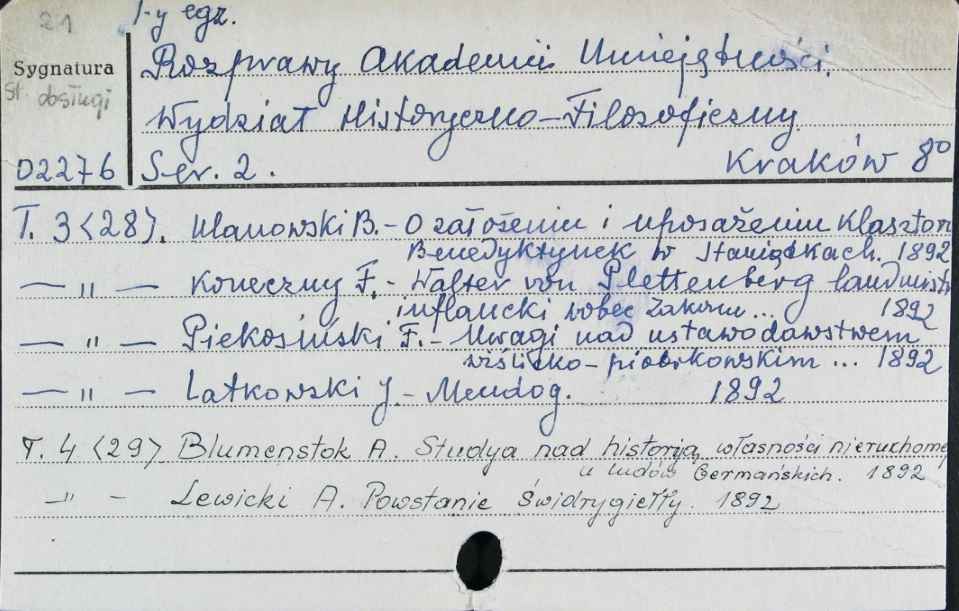 21 I-y egz.
Rozprawy Akademii Umiejętności.
Sygnatura
st obsługi
Wydział Historyczno-Filozoficzny
D2276 Ser. 2. Kraków 8º
T. 3 <28>. Ulanowski B. - O założeniu i uposażeniu klasztoru
Benedyktynek w Staniątkach. 1892
— " — Koneczny F. - Walter von Plettenberg landmistrz
inflancki wobec Zakonu ... 1892
— " — Piekosiński F. - Uwagi nad ustawodawstwem
wiślicko-piotrkowskim ... 1892
— " — Latkowski J - Mendog. 1892
T. 4 <29> Blumenstok A. Studya nad historją własności nieruchomej
u ludów Germańskich. 1892
— " — Lewicki A. Powstanie Świdrygiełły. 1892